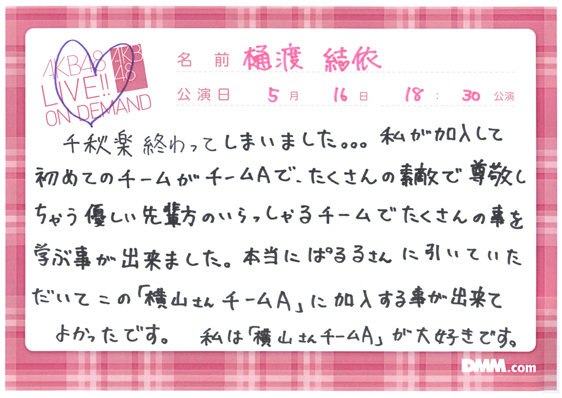 AKB48
LIVE!!
ON DEMAND
AKB
48
名前 樋渡 結依
公演日 5月 16日 18:30公演
千秋楽 終わってしまいました。。。私が加入して
初めてのチームがチームAで、たくさんの素敵で尊敬し
ちゃう優しい先輩方のいらっしゃるチームでたくさんの事を
学ぶ事が出来ました。本当にぱるるさんに引いていた
だいてこの「横山さんチームA」に加入する事が出来て
よかったです。 私は「横山さんチームA」が大好きです。
DMM.com